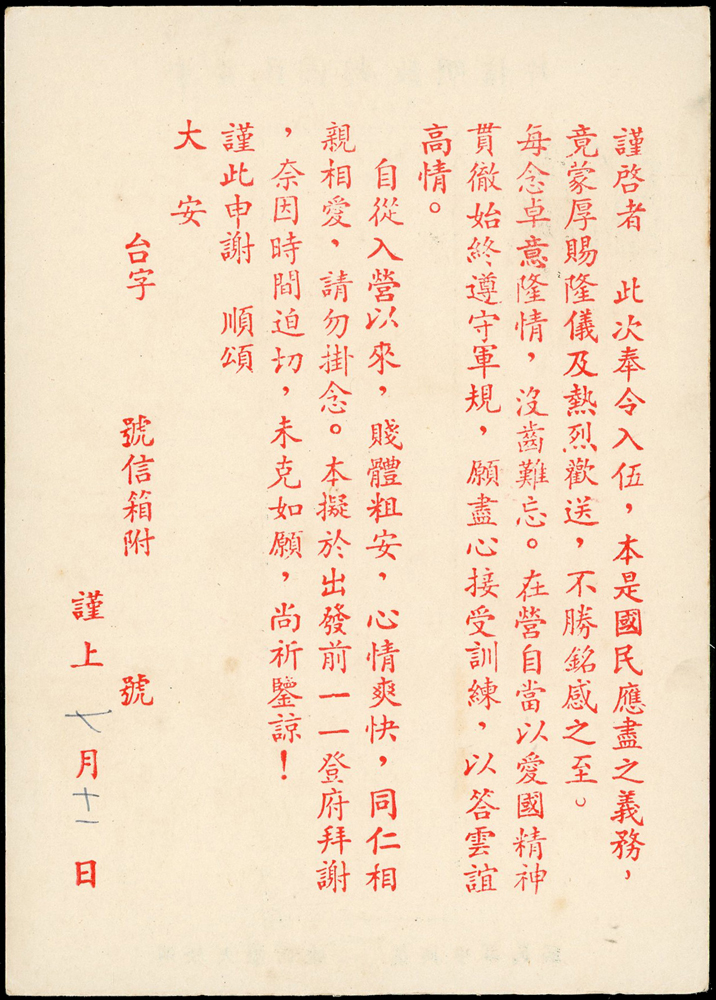 謹啓者　此次奉令入伍，本是國民應盡之義務，
竟蒙厚賜隆儀及熱烈歡送，不勝銘感之至。
每念卓意隆情，沒齒難忘。在營自當以愛國精神
貫徹始終遵守軍規，願盡心接受訓練，以答雲誼
高情。
自從入營以來，賤體粗安，心情爽快，同仁相
親相愛，請勿掛念。本擬於出發前一一登府拜謝
，奈因時間迫切，未克如願，尚祈鑒諒！
謹此申謝　順頌
大安
台字　號信箱附　號
謹上　七月十一日